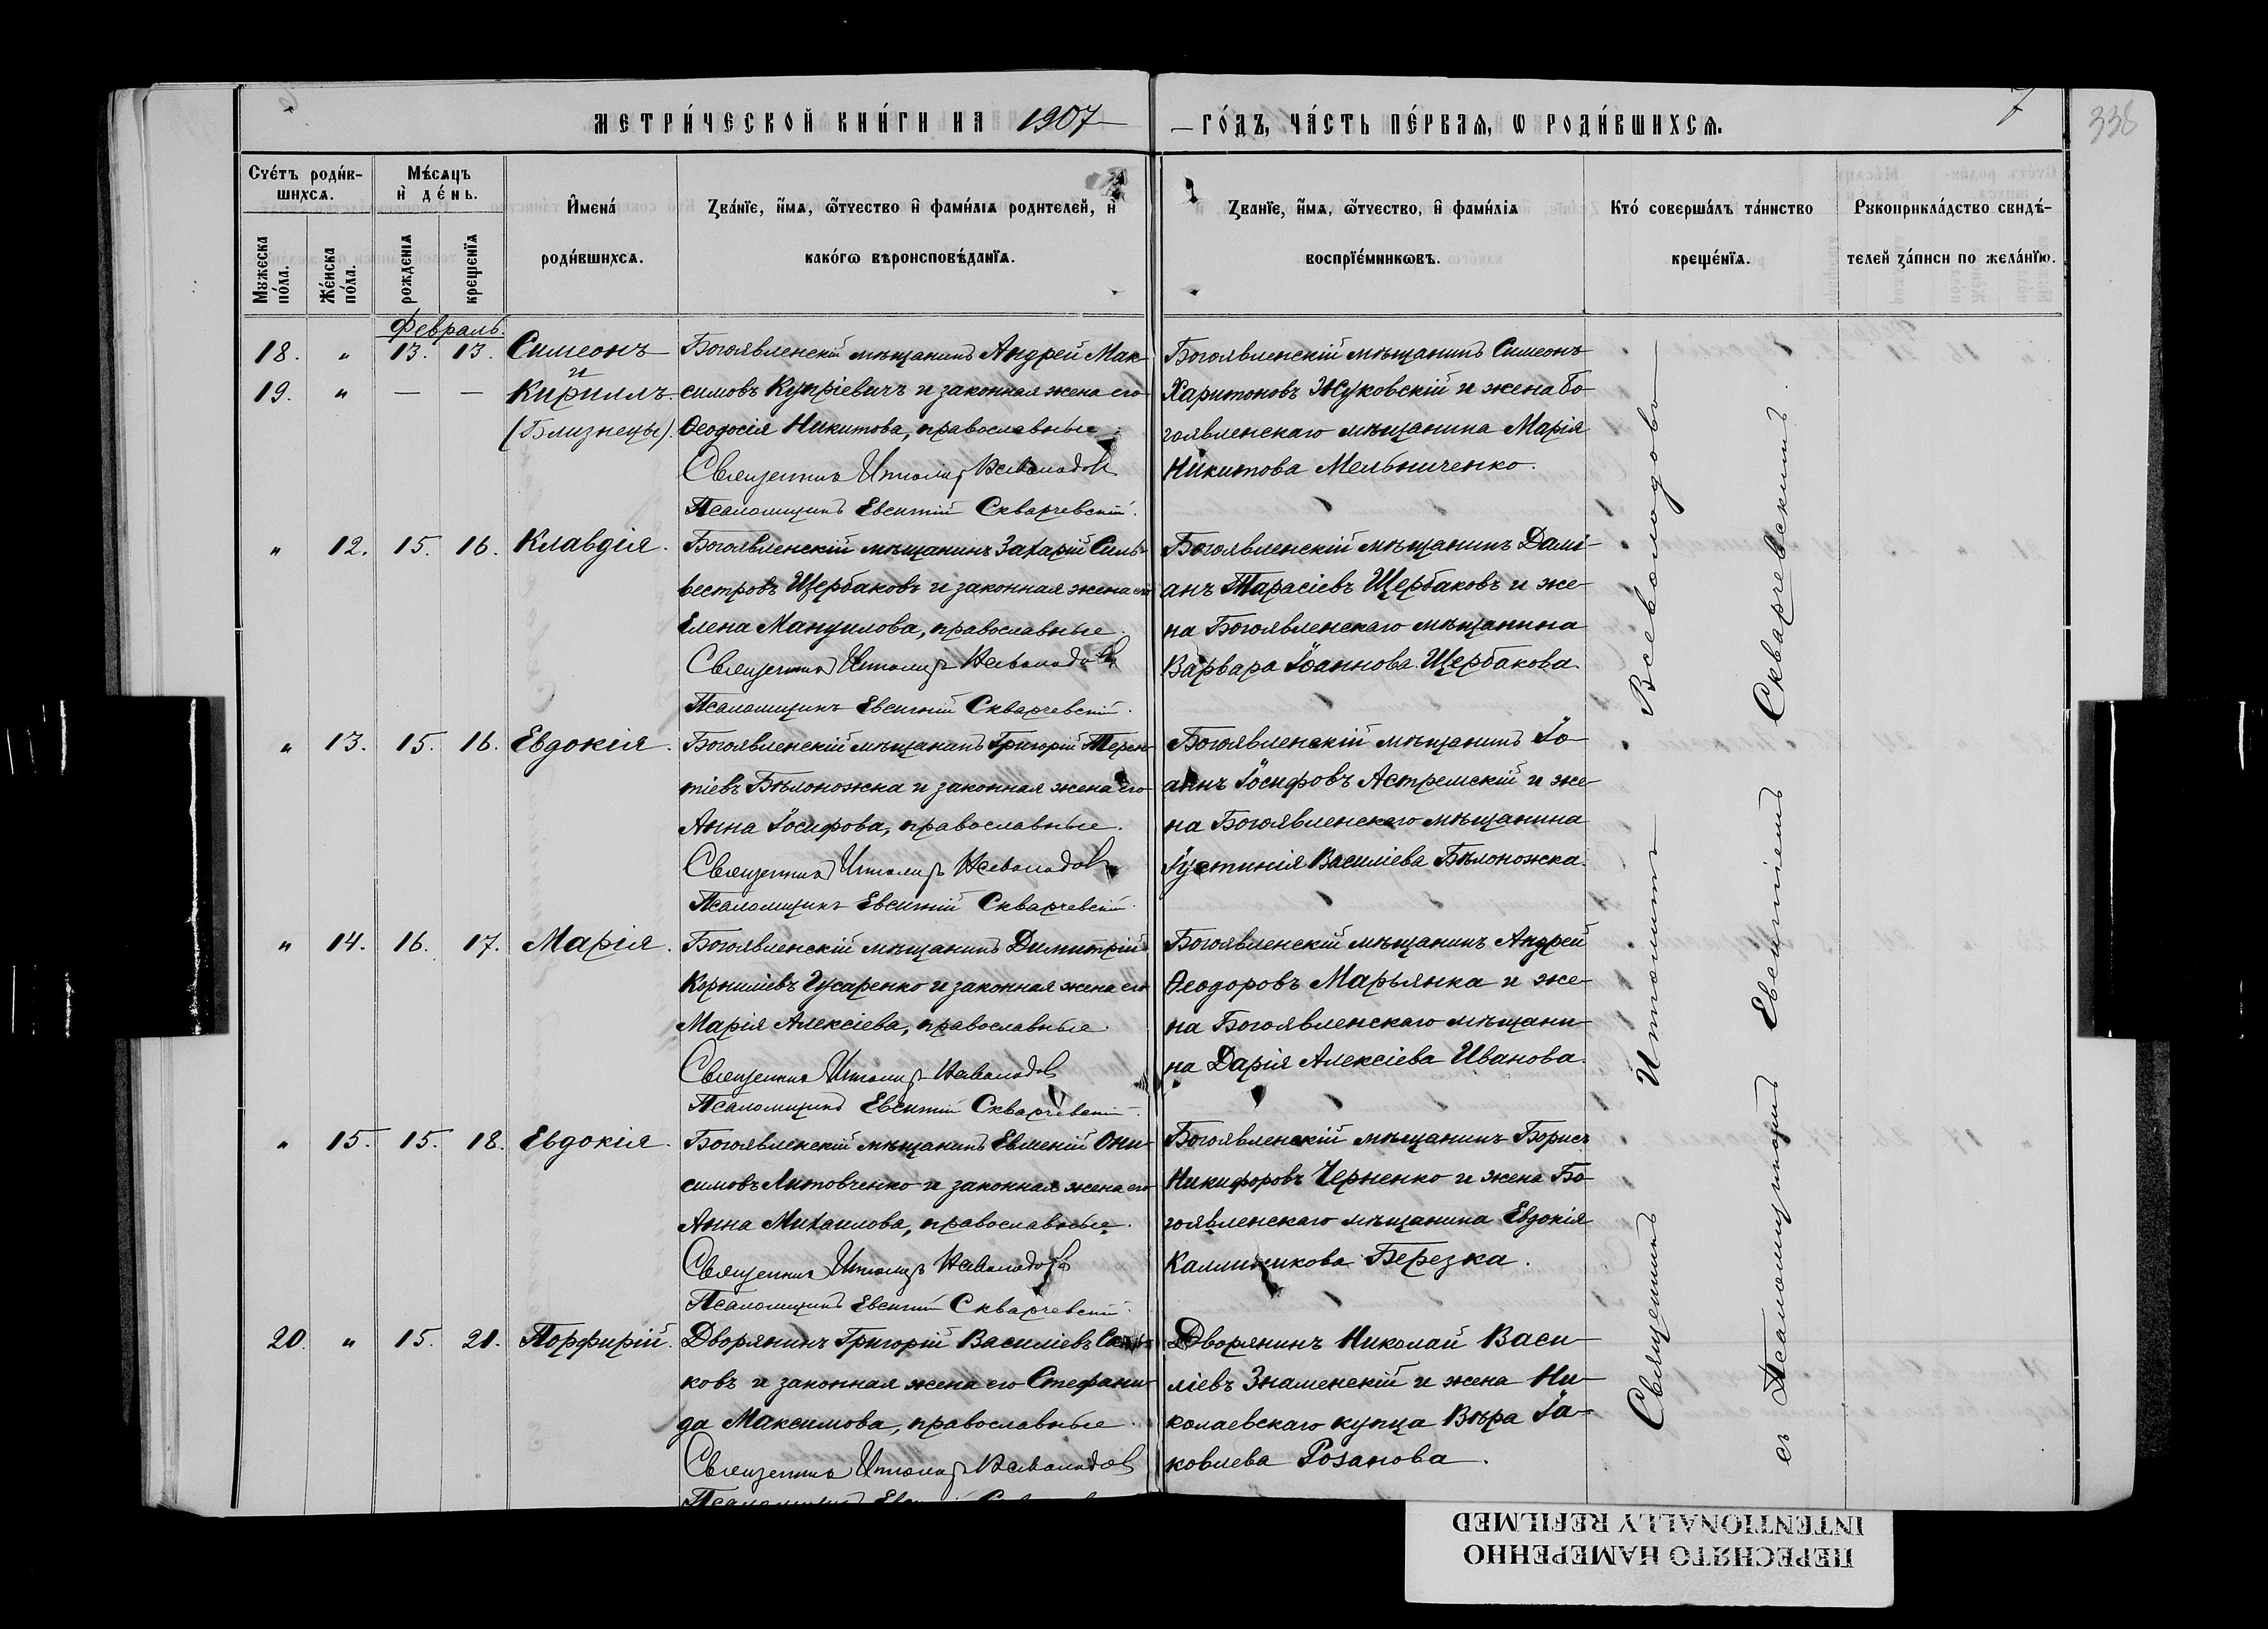 МЕТРИ́ЧЕСКОЙ КНИ́ГИ НА 1907
ГО́ДЪ, ЧА́СТЬ ПЕ́РВАѦ, Ѡ РОДИ́ВШИХСѦ.
7
338
Счє́тъ роди́в-
шихсѧ.
Мужеска
по́ла.
Же́нска
по́ла.
Мѣ́сѧцъ
и҆ де́нь.
рожденїѧ
крещенїѧ
И҆мена́
роди́вшихсѧ.
Зва́нїе, и҆́мѧ, ѻ҆́тчество и҆ фами́лїѧ родителей, и҆
како́гѡ вѣроисповѣ́данїѧ.
Зва́нїе, и҆́мѧ, ѻ҆́тчество, и҆ фами́лїѧ
воспрїе́мникѡвъ.
Кто́ соверша́лъ та́инство
креще́нїѧ.
Рукоприкла́дство свидѣ́-
телей за́писи по жела́нїю.
Февраль.
18. " 13. 13. Симеонъ
и
19. " — — Кириллъ.
(Близнецы).
Богоявленскій мѣщанинъ Андрей Мак-
симовъ Купріевичъ и законная жена его
Ѳеодосія Никитова, православные.
Священникъ Всеволодовъ
Псаломщикъ Евсигній Скварчевскій.
Богоявленскій мѣщанинъ Симеонъ
Харитоновъ Жуковскій и жена Бо-
гоявленскаго мѣщанина Марія
Никитова Мельниченко.
" 12. 15. 16. Клавдія.
Богоявленскій мѣщанинъ Захарій Силь-
вестровъ Щербаковъ и законная жена его
Елена Мануилова, православные.
Священникъ Всеволодовъ
Псаломщикъ Евсигній Скварчевскій.
Богоявленскій мѣщанинъ Даміа-
анъ Тарасіевъ Щербаковъ и же-
на Богоявленскаго мѣщанина
Варвара Іоаннова Щербакова.
" 13. 15. 16. Евдокія.
Богоявленскій мѣщанинъ Григорій Терен-
тіевъ Бѣлоножка и законная жена его
Анна Іосифова, православные.
Священникъ Всеволодовъ
Псаломщикъ Евсигній Скварчевскій.
Богоявленскій мѣщанинъ Іо-
аннъ Іосифовъ Астремскій и же-
на Богоявленскаго мѣщанина
Іустинія Василіева Бѣлоножка.
" 14. 16. 17. Марія.
Богоявленскій мѣщанинъ Димитрій
Корниліевъ Гусаренко и законная жена его
Марія Алексіева, православные.
Священникъ Всеволодовъ
Псаломщикъ Евсигній Скварчевскій.
Богоявленскій мѣщанинъ Андрей
Ѳеодоровъ Марьянка и же-
на Богоявленскаго мѣщани-
на Дарія Алексіева Иванова.
" 15. 15. 18. Евдокія.
Богоявленскій мѣщанинъ Евменій Они-
симовъ Литовченко и законная жена его
Анна Михаилова, православные.
Священникъ Всеволодовъ
Псаломщикъ Евсигній Скварчевскій.
Богоявленскій мѣщанинъ Борисъ
Никифоровъ Черненко и жена Бо-
гоявленскаго мѣщанина Евдокія
Каллиникова Березка.
20. " 15. 21. Порфирій.
Дворянинъ Григорій Василіевъ
ковъ и законная жена его Стефани-
да Максимова, православные.
Священникъ Всеволодовъ
Дворянинъ Николай Васи-
ліевъ Знаменскій и жена Ни-
колаевскаго купца Вѣра Іа-
ковлева Розанова.
Священникъ Всеволодовъ
съ Псаломщикомъ Евсигніемъ Скварчевскимъ.
ПЕРЕСНЯТО НАМЕРЕННО
INTENTIONALLY REFILMED